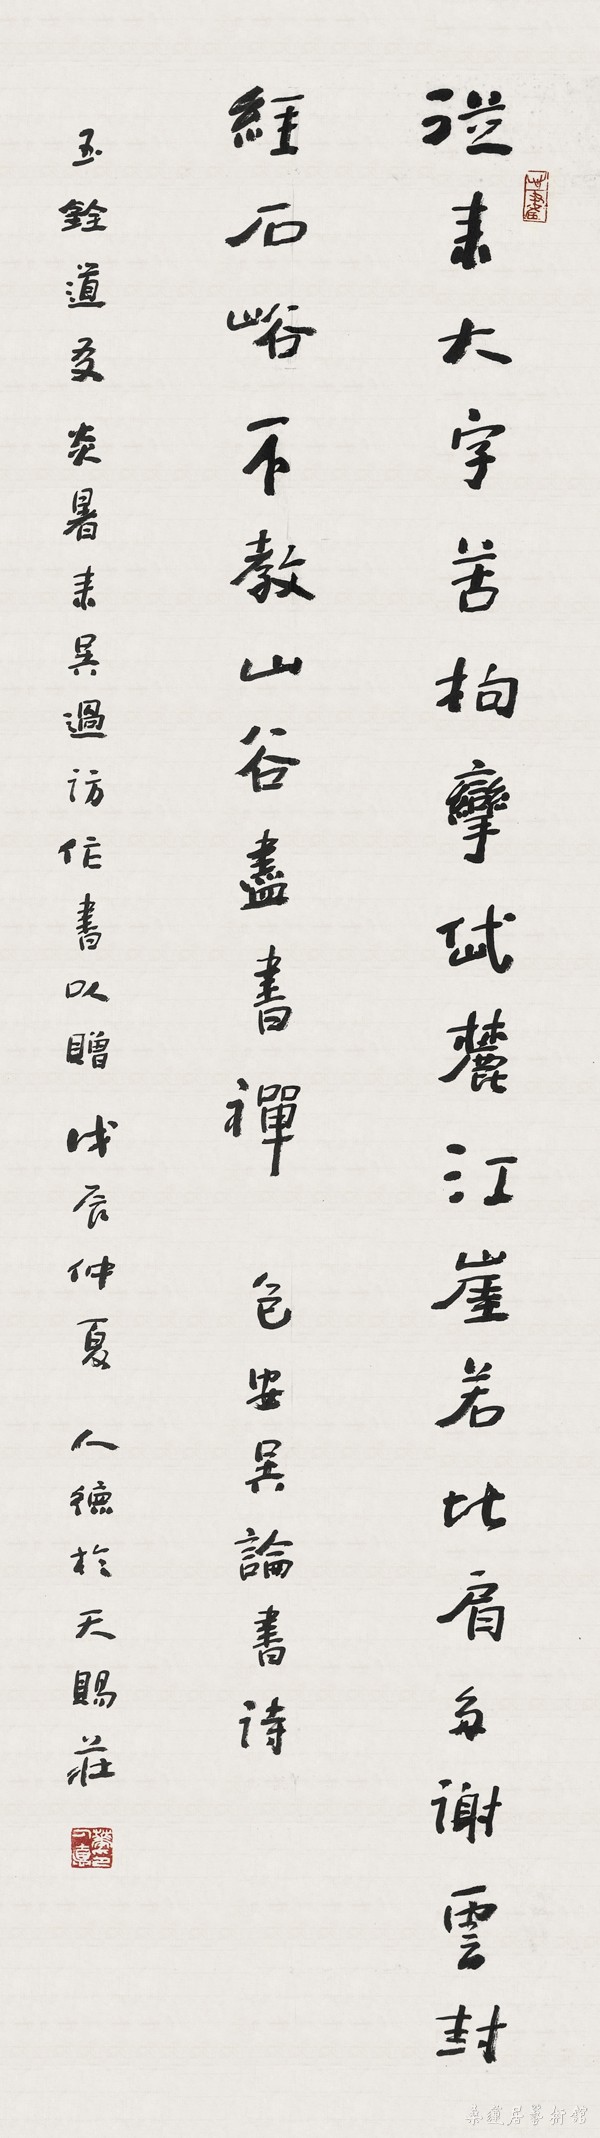 從来大字苦拘攣岱麓江崖若比肩多謝雲封
經石峪不教山谷盡書禪 包安吳論書詩
玉銓道友炎暑来吴過訪作書以贈 戊辰仲夏 人德於天賜莊
桑蓮居藝術館